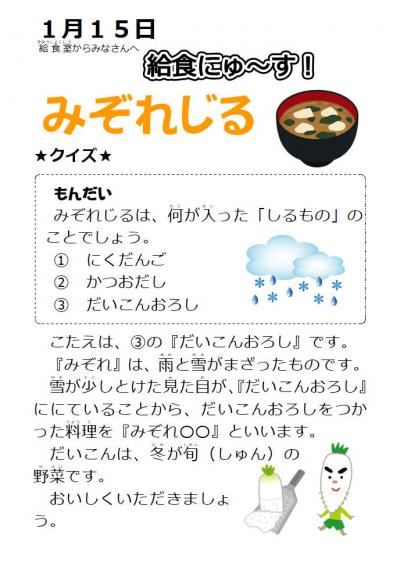 １月１５日
給食室からみなさんへ
給食にゅ～す！
みぞれじる
★クイズ★
もんだい
みぞれじるは、何が入った「しるもの」の
ことでしょう。
①　にくだんご
②　かつおだし
③　だいこんおろし
こたえは、③の『だいこんおろし』です。
『みぞれ』は、雨と雪がまざったものです。
雪が少しとけた見た目が、『だいこんおろし』
ににていることから、だいこんおろしをつか
った料理を『みぞれ〇〇』といいます。
だいこんは、冬が旬（しゅん）の
野菜です。
おいしくいただきましょ
う。